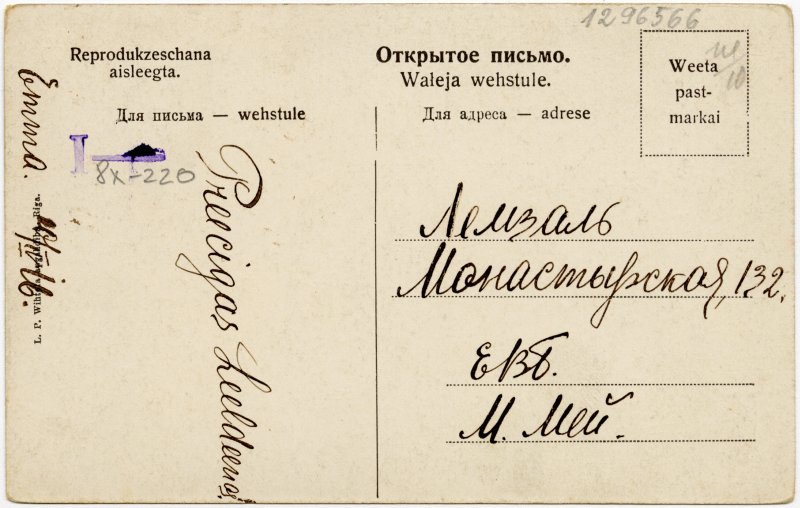 1296566
Reprodukzeschana
aisleegta.
Открытое письмо.
Waļeja wehstule.
Weeta
past-
markai
Для письма — wehstule
Для адреса — adrese
I
8x-220
Emma.
Preecigas Leeldeenas
L. P. Riga.
Лемзаль
Монастырская, 132.
Евѣ.
М. Мей.